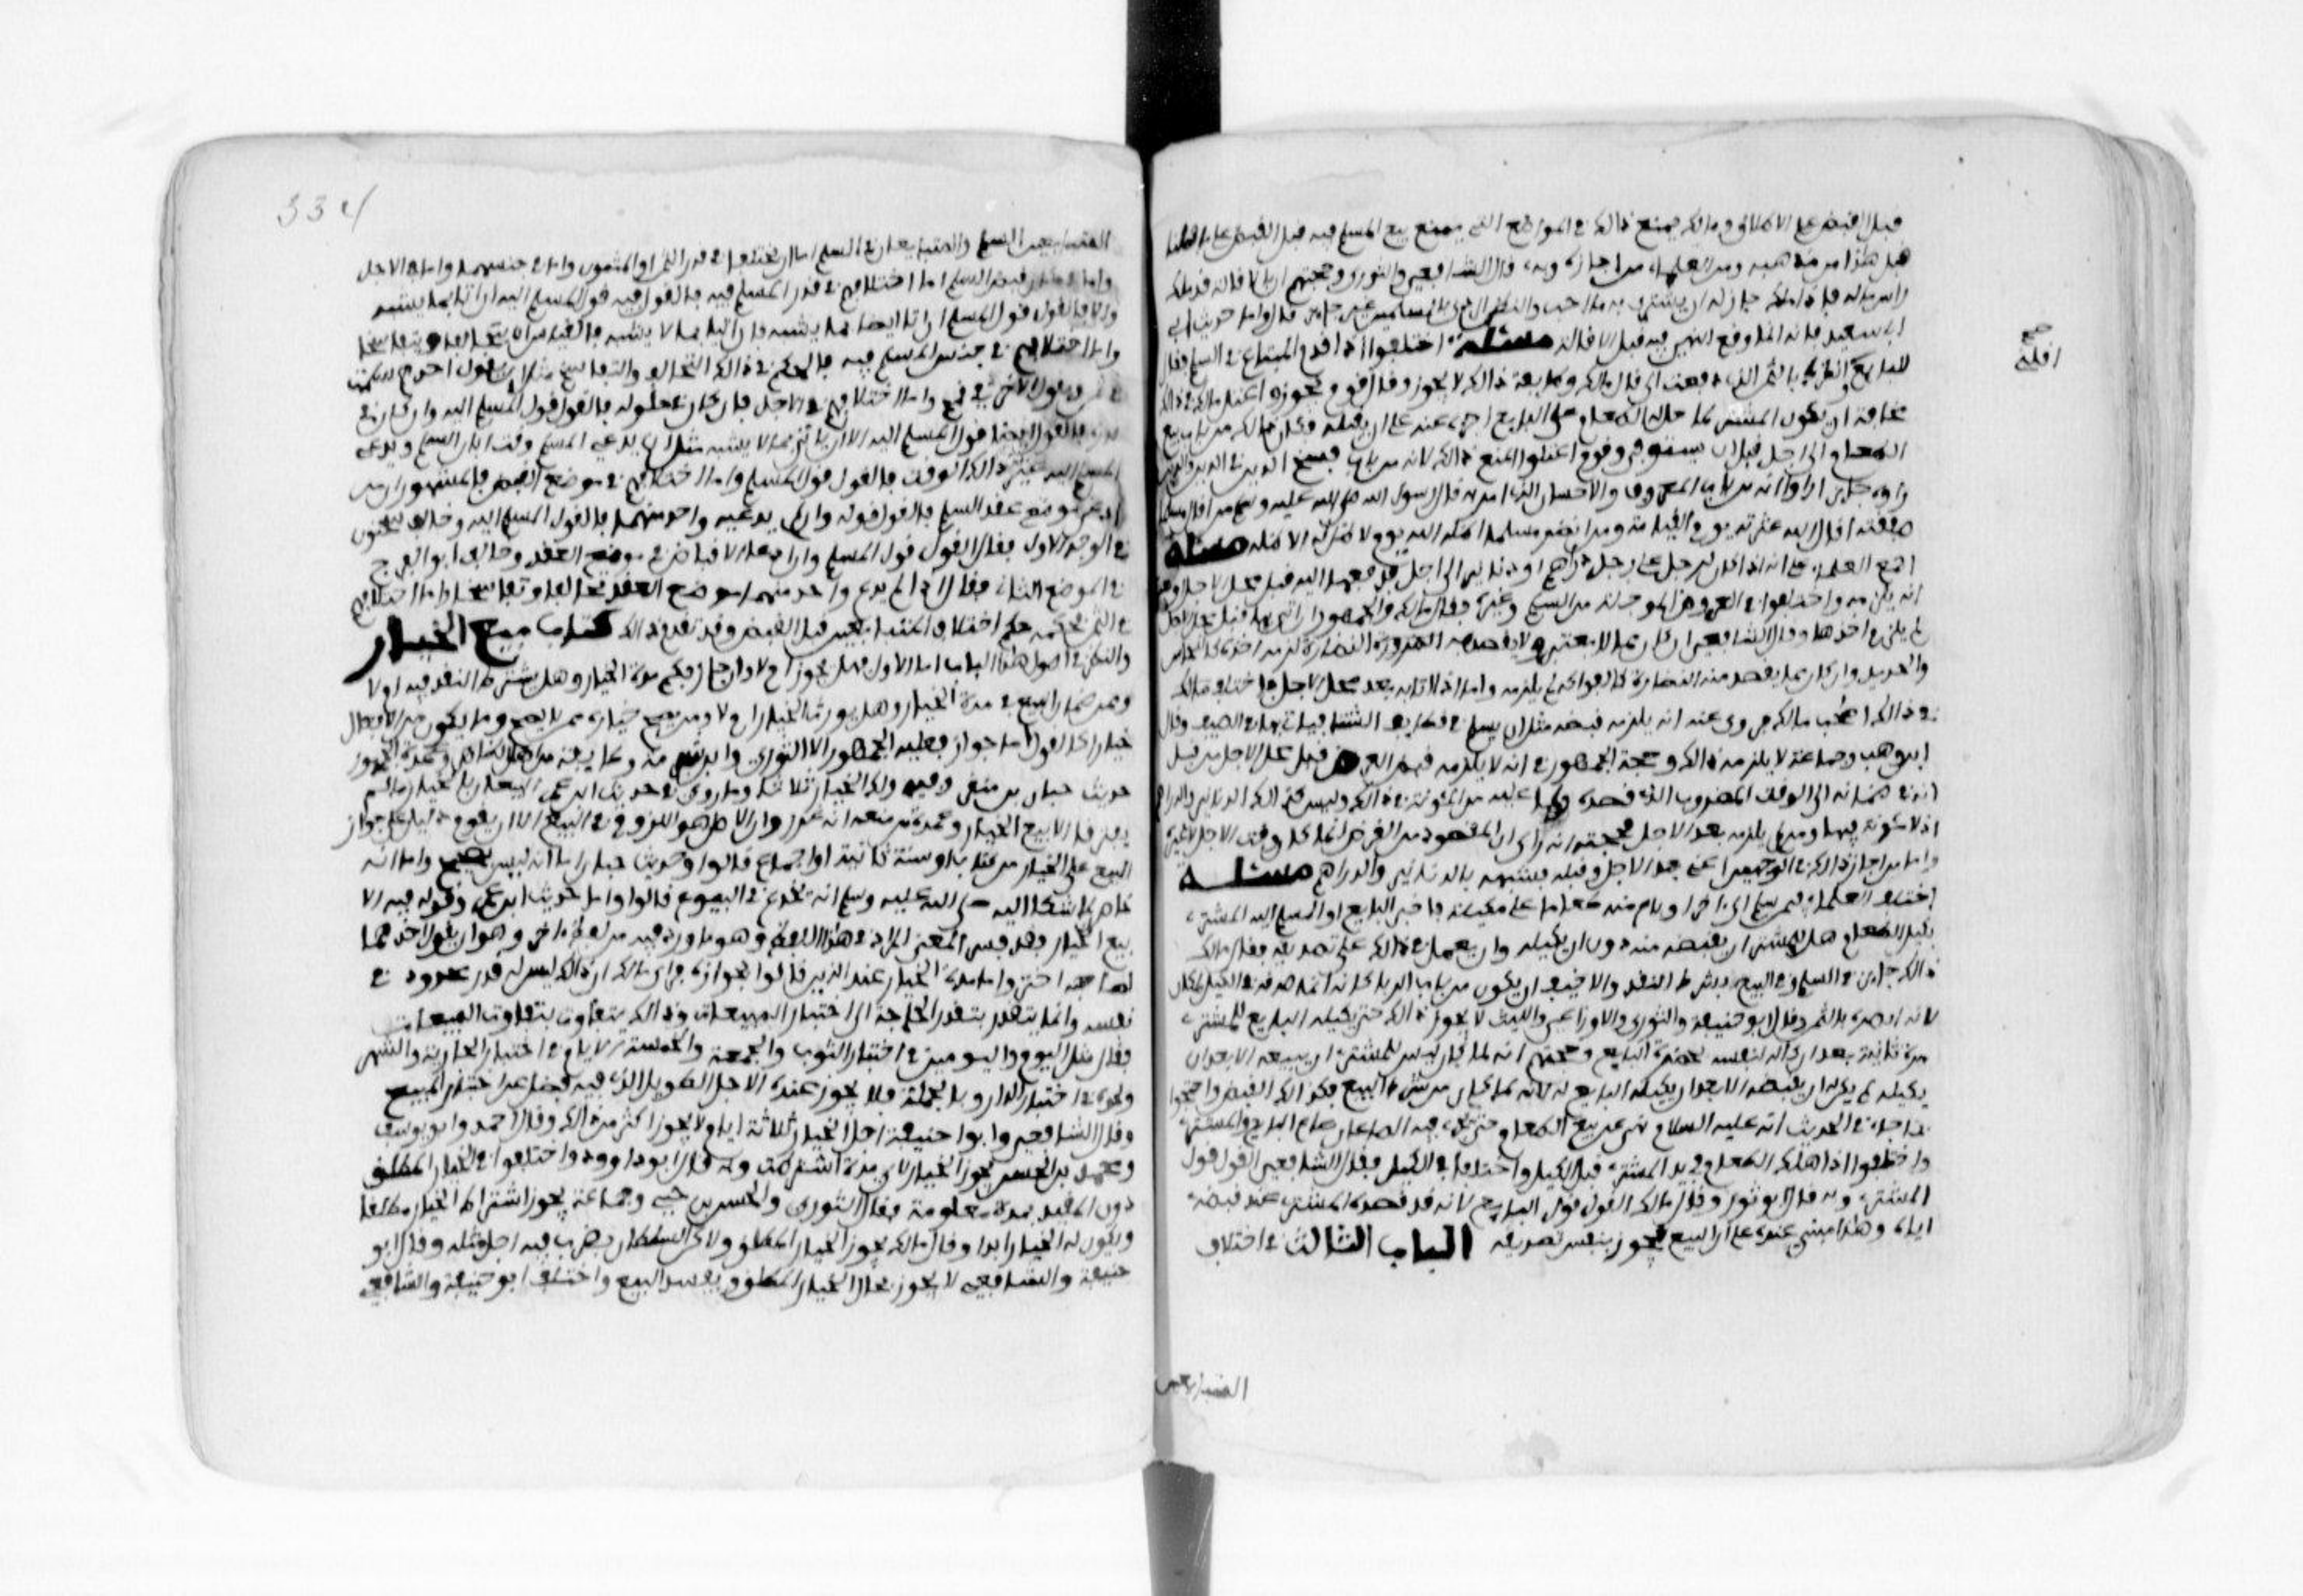 قبل القبض على الاطلاق ومالك يمنع ذالك في المواضع التي يمنع بيع المسلم فيه قبل القبض على ما فصلنا
قبل هذا من مذهبه ومن العلماء من اجازه وبه قال الشافعي والثوري وحجتهم ان بالاقالة قد ملك
راس ماله فاذا ملكه جاز له ان يشتري به ما احب والظن الردي بالمسلمين غير جائز قال واما حديث ابي
ابي سعيد فانه انما وقع النهي فيه قبل الاقالة مسئلة اختلفوا اذا ندم المبتاع في السلم فقال
للبايع انظرك بالثمن الذي دفعت الي فقال مالك وطايفة ذالك لا يجوز وقال قوم يجوز واعتل مالك في ذالك
مخافة ان يكون المشتري لما حل له الطعام على البايع اخره عنه على ان يقيله فكان ذالك من باب بيع
الطعام الى اجل قبل ان يستوفى وقوم اعتلوا المنع ذالك لانه من باب فسخ الدين في الدين والذين
راوه جايزا راوا انه من باب المعروف والاحسان الذي امر به قال رسول الله صلى الله عليه وسلم من اقال مسلما
صفقته اقال الله عثرته يوم القيامة ومن انظر مسلما اظله الله يوم لا ظل الا ظله مسئلة
اجمع العلماء على انه اذا كان لرجل على رجل دراهم او دنانير الى اجل فدفعها اليه قبل محل الاجل وبعده
انه يلزمه واختلفوا في العروض الموجلة من السلم وغيره فقال مالك والجمهور ان اتى بها قبل محل الاجل
لم يلزم اخذها وقال الشافعي ان كان مما لا يتغير ولا يقصد به النضارة لزمه اخذه كالنحاس
والحديد وان كان مما يقصد منه النضارة كالفواكه لم يلزمه واما اذا اتى به بعد محل الاجل فاختلف
في ذالك اصحاب مالك فروى عنه انه يلزمه قبضه مثل ان يسلم في قطايف الشتا فياتي بها في الصيف وقال
ابن وهب وجماعة لا يلزمه ذالك وحجة الجمهور في انه لا يلزمه قبض العروض قبل محل الاجل من قبل
انه في ضمانه الى الوقت المضروب الذي قصده ولما عليه من المئونة في ذالك وليس كذالك الدنانير والدراهم
اذ لا مئونة فيها ومن لم يلزمه بعد الاجل فحجته انه راى ان المقصود من العروض انما كان وقت الاجل لا غيره
واما من اجاز ذالك في الوجهين اعني بعد الاجل وقبله فشبهه بالدنانير والدراهم مسئلة
اختلف العلماء فيمن سلم الى اخر او باع منه طعاما على مكيلة فاخبر البايع او المسلم اليه المشتري
بكيل الطعام هل للمشتري ان يقبضه منه دون ان يكيله وان يعمل في ذالك على تصديقه فقال مالك
ذالك جايز في السلم وفي البيع بشرط النقد والا خيف ان يكون من باب الربا كانه انما صدقه في الكيل لمكان
لانه انظره بالثمن وقال ابو حنيفة والثوري والاوزاعي والليث لا يجوز ذالك حتى يكيله البايع للمشتري
مرة ثانية بعد ان كاله لنفسه بحضرة البايع وحجتهم انه لما كان ليس للمشتري ان يبيعه الا بعد ان
يكيله لم يكن له ان يقبضه الا بعد ان يكيله البايع له لانه لما كان من شرط البيع فكذالك القبض واحتجوا
بما جاء في الحديث انه عليه السلام نهى عن بيع الطعام حتى يجري فيه الصاعان صاع البايع والمشتري
واختلفوا اذا هلك الطعام في يد المشتري قبل الكيل واختلفا في الكيل فقال الشافعي القول قول
المشتري وبه قال ابو ثور وقال مالك القول قول البايع لانه قد صدقه المشتري عند قبضه
اياه وهذا مبني عنده على ان البيع يجوز بنفس تصديقه الباب الثالث في اختلاف
المتبايعين
صح
اقلته
334
المتبايعين في السلم والمتبايعان في السلم اما ان يختلفا في قدر الثمن او المثمون واما في جنسهما واما في الاجل
واما في مكان قبض السلم اما اختلافهم في قدر المسلم فيه فالقول فيه قول المسلم اليه ان اتى بما يشبه
والا فالقول قول المسلم ان اتى ايضا بما يشبه فان اتيا بما لا يشبه فالقياس ان يتحالفا ويتفاسخا
واما اختلافهم في جنس المسلم فيه فالحكم في ذالك التحالف والتفاسخ مثل ان يقول احدهم اسلمت
في تمر ويقول الاخر في قمح واما اختلافهم في الاجل فان كان في حلوله فالقول قول المسلم اليه وان كان في
قدره فالقول ايضا قول المسلم اليه الا ان ياتي بما لا يشبه مثل ان يدعي المسلم وقت ابان السلم ويدعي
المسلم اليه غير ذالك الوقت فالقول قول المسلم واما اختلافهم في موضع القبض فالمشهور ان من
ادعى موضع عقد السلم فالقول قوله وان لم يدعيه واحد منهما فالقول المسلم اليه وخالف سحنون
في الوجه الاول فقال القول قول المسلم وان ادعا الاقباض في موضع العقد وخالف ابو الفرج
في الموضع الثاني فقال ان لم يدع واحد منهما موضع العقد تحالفا وتفاسخا واما اختلافهم
في الثمن فحكمه حكم اختلاف المتبايعين قبل القبض وقد تقدم ذالك كتاب بيع الخيار
والنظر في اصول هذا الباب اما الاول فهل يجوز ام لا وان جاز فكم مدة الخيار وهل يشترط النقد فيه او لا
وممن ضمان المبيع في مدة الخيار وهل يورث الخيار ام لا ومن يصح خياره ممن لا يصح وما يكون من الافعال
خيارا كالقول اما جوازه فعليه الجمهور الا الثوري وابن شبرمة وطايفة من اهل الظاهر وعمدة الجمهور
حديث حبان بن منقذ وفيه ولك الخيار ثلاثا وما روي في حديث ابن عمر البيعان بالخيار ما لم
يفترقا الا بيع الخيار وعمدة من منعه انه غرر وان الاصل هو اللزوم في البيع الا ان يقوم دليل على جواز
البيع على الخيار من كتاب او سنة ثابتة او اجماع قالوا وحديث حبان اما انه ليس بصحيح واما انه
خاص لما شكا اليه صلى الله عليه وسلم انه يخدع في البيوع قالوا واما حديث ابن عمر وقوله فيه الا
بيع الخيار فقد فسر المعنى المراد في هذا اللفظ وهو ما ورد فيه من لفظ اخر وهو ان يقول احدهما
لصاحبه اختر واما مدة الخيار عند الذين قالوا بجوازه فراى مالك ان ذالك ليس له قدر محدود في
نفسه وانما يتقدر بتقدر الحاجة الى اختبار المبيعات وذالك يتفاوت بتفاوت المبيعات
فقال مثل اليوم واليومين في اختبار الثوب والجمعة والخمسة الايام في اختبار الجارية والشهر
ونحوه في اختبار الدار وبالجملة فلا يجوز عنده الاجل الطويل الذي فيه فضل عن اختبار المبيع
وقال الشافعي وابو حنيفة اجل الخيار ثلاثة ايام ولا يجوز اكثر من ذالك وقال احمد وابو يوسف
ومحمد بن الحسن يجوز الخيار لاي مدة اشترطت وبه قال ابو داوود واختلفوا في الخيار المطلق
دون المقيد بمدة معلومة فقال الثوري والحسن بن حيي وجماعة يجوز اشتراط الخيار مطلقا
ويكون له الخيار ابدا وقال مالك يجوز الخيار المطلق ولاكن السلطان يضرب فيه اجل مثله وقال ابو
حنيفة والشافعي لا يجوز بحال الخيار المطلق ويفسد البيع واختلف ابو حنيفة والشافعي